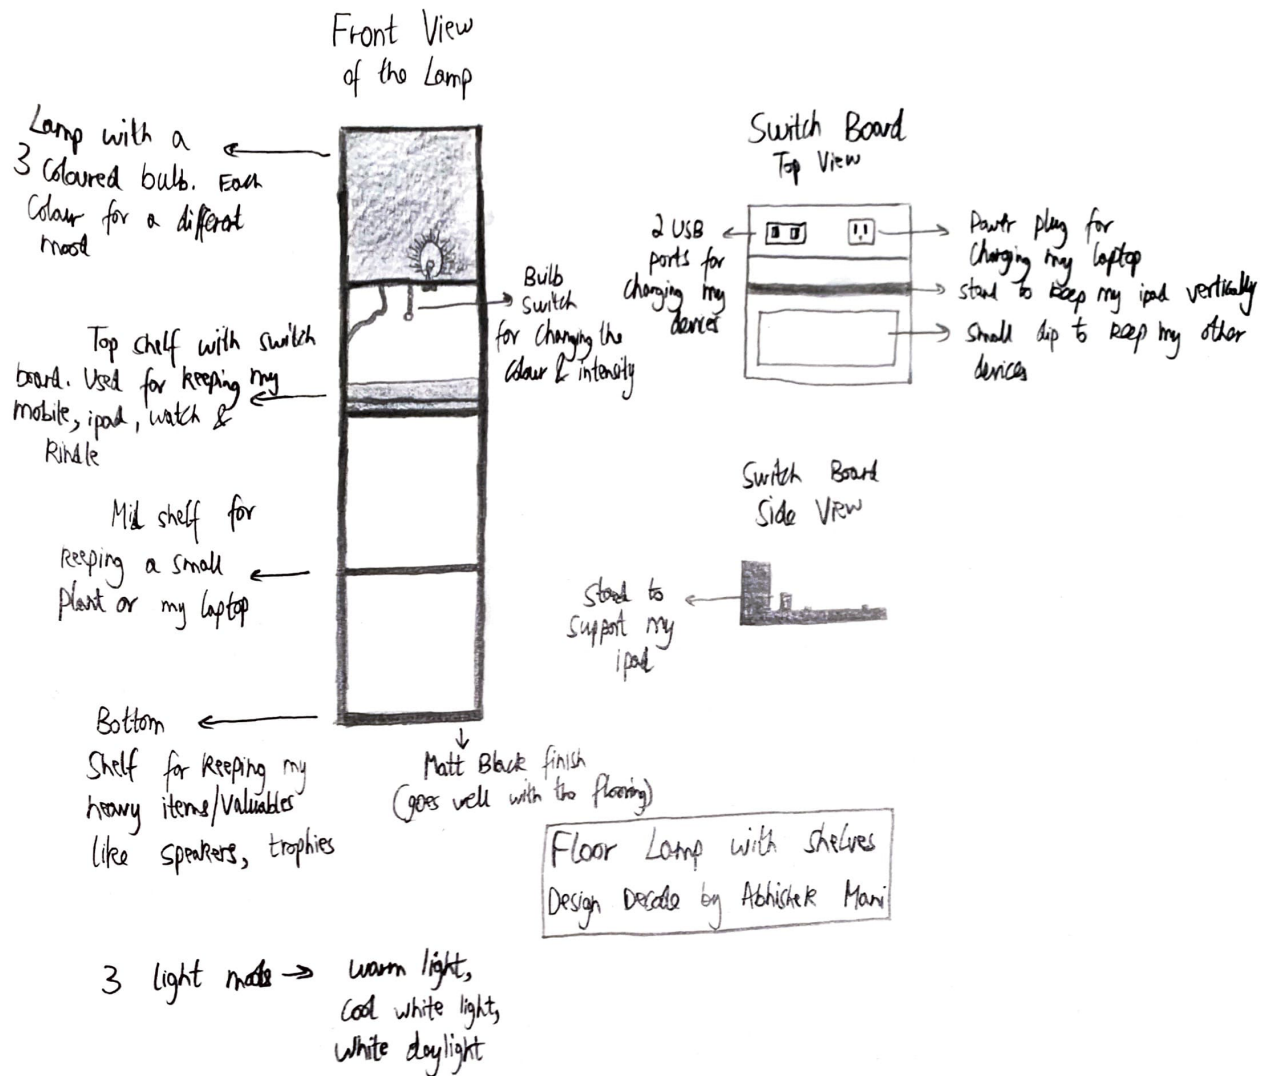 Front View
of the Lamp
Lamp with a
3 Coloured bulb. Each
Colour for a different
mood
Bulb
Switch
for Changing the
Colour & intensity
Top shelf with switch
board. Used for keeping my
mobile, ipad, watch &
Kindle
Mid shelf for
keeping a small
plant or my laptop
Bottom
Shelf for keeping my
heavy items/Valuables
like speakers, trophies
Matt Black finish
(goes well with the flooring)
Switch Board
Top View
2 USB
ports for
Charging my
devices
Power plug for
Charging my laptop
stand to keep my ipad vertically
Small dip to keep my other
devices
Switch Board
Side View
Stand to
support my
ipad
Floor Lamp with shelves
Design Decode by Abhishek Mani
3 light modes → warm light,
Cool white light,
White daylight